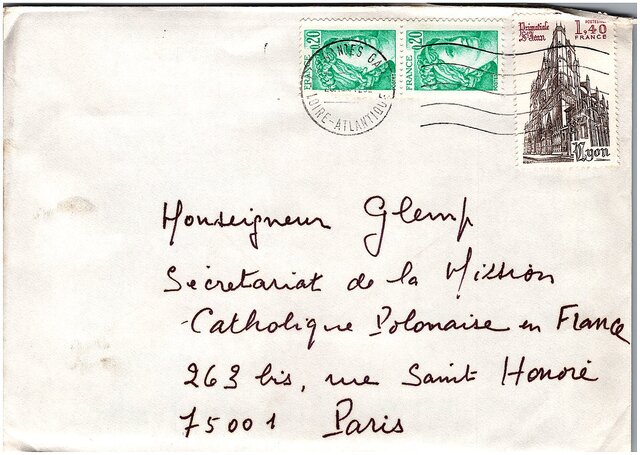 FRANCE 0,20
FRANCE 0,20
Primatiale St Jean
POSTES
1,40
FRANCE
Lyon
LOIRE-ATLANTIQUE
Monseigneur Glemp
Sécretariat de la Mission
Catholique Polonaise en France
263 bis, rue Saint Honoré
75001 Paris